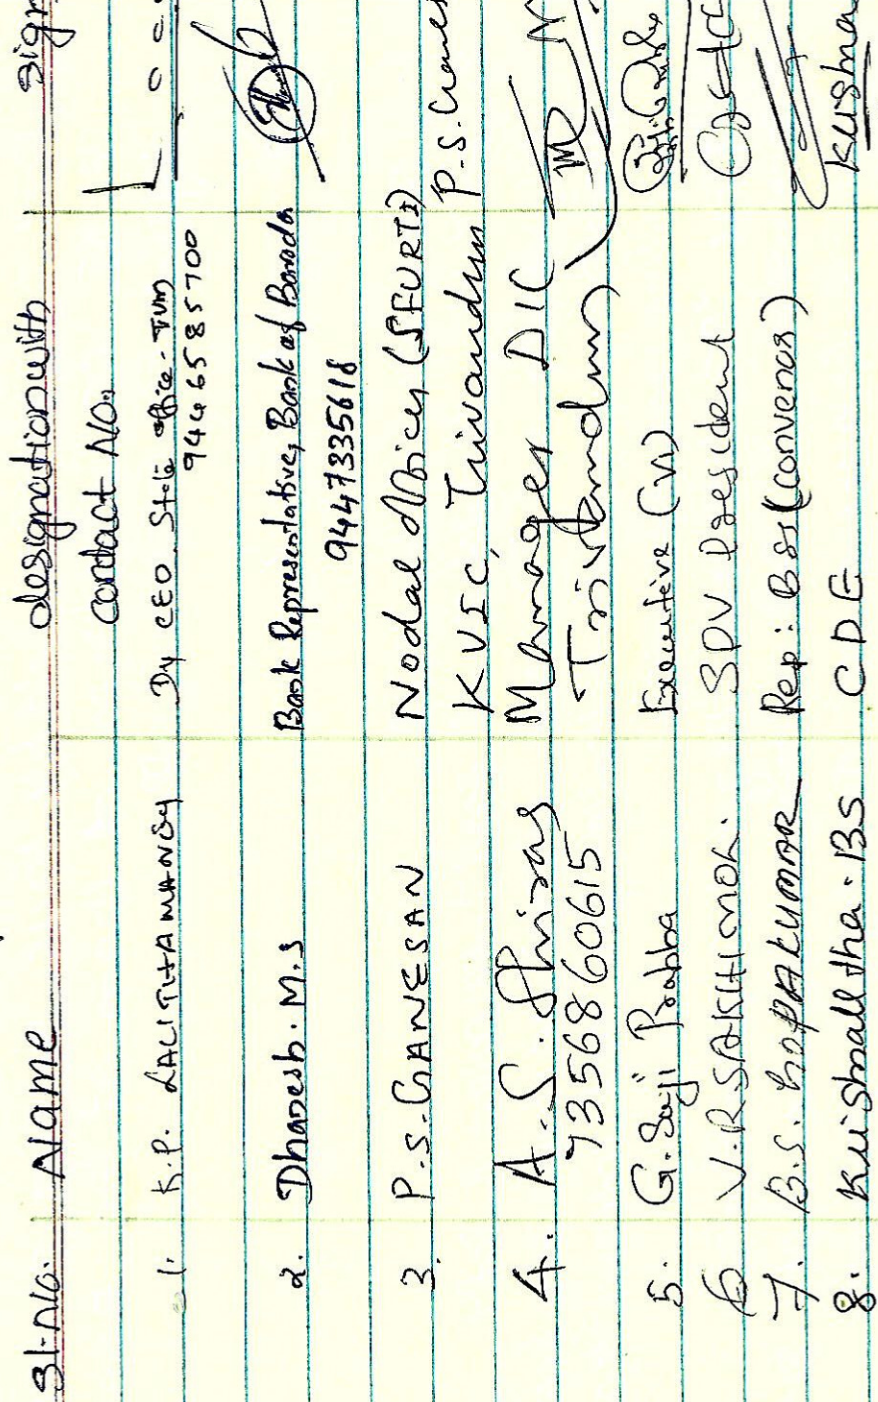 Sl.No. Name designation with sign
contact No.
1. K.P. LALITHAMANOY Dy CEO State office - TVM
9446585700
2. Dhanesh. M.S Bank Representative, Bank of Baroda
9447335618
3. P.S. GANESAN Nodal Officer (SFURTI)
KVIC, Trivandrum P.S. Ganes
4. A.S. Shiras Manager DIC
9356860615 Trivandrum
5. G. Saji Prabha Executive (VI)
6 V.R. SAKHI MOL. SPV President
7. B.S. GOPAKUMAR Rep: BSS (convenor)
8. Krishnalltha. BS CDE Krishna